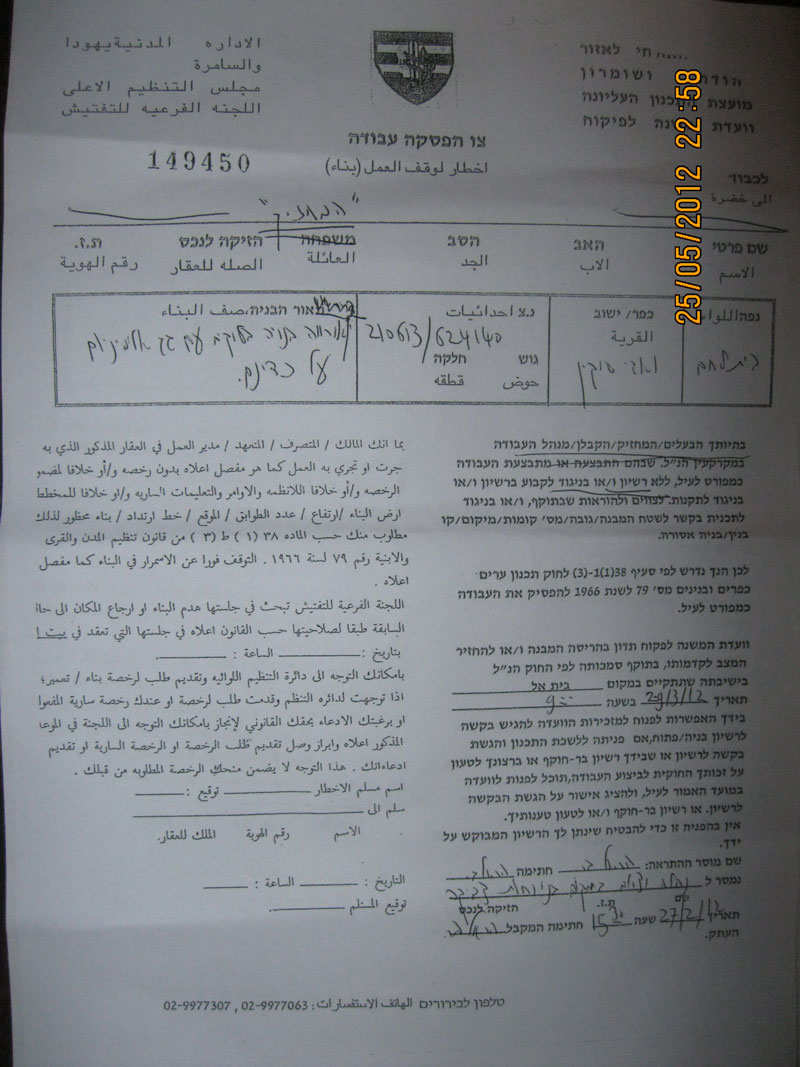 חי לאזור
ושומרון
מועצת התכנון העליונה
וועדת משנה לפיקוח
الاداره المدنية يهودا
والسامرة
مجلس التنظيم الاعلى
اللجنه الفرعيه للتفتيش
צו הפסקה עבודה
149450
اخطار لوقف العمل (بناء)
לכבוד
الى خضرة
"המחזיק"
שם פרטי האב הסב משפחה הזיקה לנכס ת.ז.
الاسم الاب الجد العائلة الصله للعقار رقم الهوية
נפה/اللواء כפר/ ישוב נ.צ احداثيات תאור הבניה,صف البناء
القرية
בית לחם
210613/624140
גוש חלקה
حوض قطعه
על
בהיותך הבעלים/המחזיק/הקבלן/מנהל העבודה
במקרקעין הנ"ל. שבהם התבצעה או מתבצעת העבודה
כמפורט לעיל, ללא רשיון ו/או בניגוד לקבוע ברשיון ו/או
בניגוד לתקנות. לצווים ולהוראות שבתוקף, ו/או בניגוד
לתכנית בקשר לשטח המבנה/גובה/מס' קומות/מיקום/קו
בנין/בניה אסורה.
לכן הנך נדרש לפי סעיף 38(1)-(3) לחוק תכנון ערים
כפרים ובנינים מס' 79 לשנת 1966 להפסיק את העבודה
כמפורט לעיל.
וועדת המשנה לפקוח תדון בהריסה המבנה ו/או להחזיר
המצב לקדמותו, בתוקף סמכותה לפי החוק הנ"ל
בישיבתה שתתקיים במקום בית אל
תאריך 29/3/12 בשעה
בידך האפשרות לפנות למזכירות הוועדה להגיש בקשה
לרשיון בניה/פתוח,אם פניתה ללשכת התכנון והגשת
בקשה לרשיון או שבידך רשיון בר-חוקף או ברצונך לטעון
על זכותך החוקית לביצוע העבודה,תוכל לפנות לוועדה
במועד האמור לעיל, ולהציג אישור על הגשת הבקשה
לרשיון. או רשיון בר-חוקף ו/או לטעון טענותיך.
אין בהפניה זו כדי להבטיח שינתן לך הרשיון המבוקש על
ידך.
שם מוסר ההתראה: חתימה
נמסר ל
שם ת.ז. הזיקה לנכס
תאריך 27/2/12 שעה חתימה המקבל
העתק.
بما انك المالك / المتصرف / المتعهد / مدير العمل في العقار المذكور الذي به
جرت او تجري به العمل كما هو مفصل اعلاه بدون رخصه و/أو خلافا لمضمو
الرخصه و/أو خلافا للانظمه والاوامر والتعليمات الساريه و/او خلافا للمخطط
ارض البناء /ارتفاع / عدد الطوابق / الموقع / خط ارتداد / بناء محظور لذلك
مطلوب منك حسب الماده ٣٨ (١) ط (٣) من قانون تنظيم المدن والقرى
والابنية رقم ٧٩ لسنة ١٩٦٦. التوقف فورا عن الاسمرار في البناء كما مفصل
اعلاه.
اللجنة الفرعية للتفتيش تبحث في جلستها هدم البناء او ارجاع المكان الى حالا
السابقة طبقا لصلاحيتها حسب القانون اعلاه في جلستها التي تعقد في بيت ا
بتاريخ: الساعة:
بامكانك التوجه الى دائرة التنظيم اللوائيه وتقديم طلب لرخصة بناء / تعمير؛
اذا توجهت لدائره التنظم وقدمت طلب لرخصة او عندك رخصة سارية المفعوا
او برغبتك الادعاء بحقك القانوني لإنجاز بامكانك التوجه الى اللجنة في الموعا
المذكور اعلاه وابراز وصل تقديم طلب الرخصة او الرخصة السارية او تقديم
ادعاءاتك. هذا التوجه لا يضمن منحك الرخصة المطلوبه من قبلك.
اسم مسلم الاخطار توقيع:
سلم الى
الاسم رقم الهوية الملك للعقار.
التاريخ: الساعة:
توقيع المستلم
טלפון לבירורים الهاتف الاستفسارات: 02-9977063, 02-9977307
25/05/2012 22:58